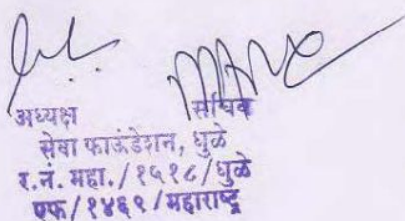 अध्यक्ष सचिव
सेवा फाऊंडेशन, धुळे
र.नं. महा./१६१८/धुळे
एफ/१४६९/महाराष्ट्र